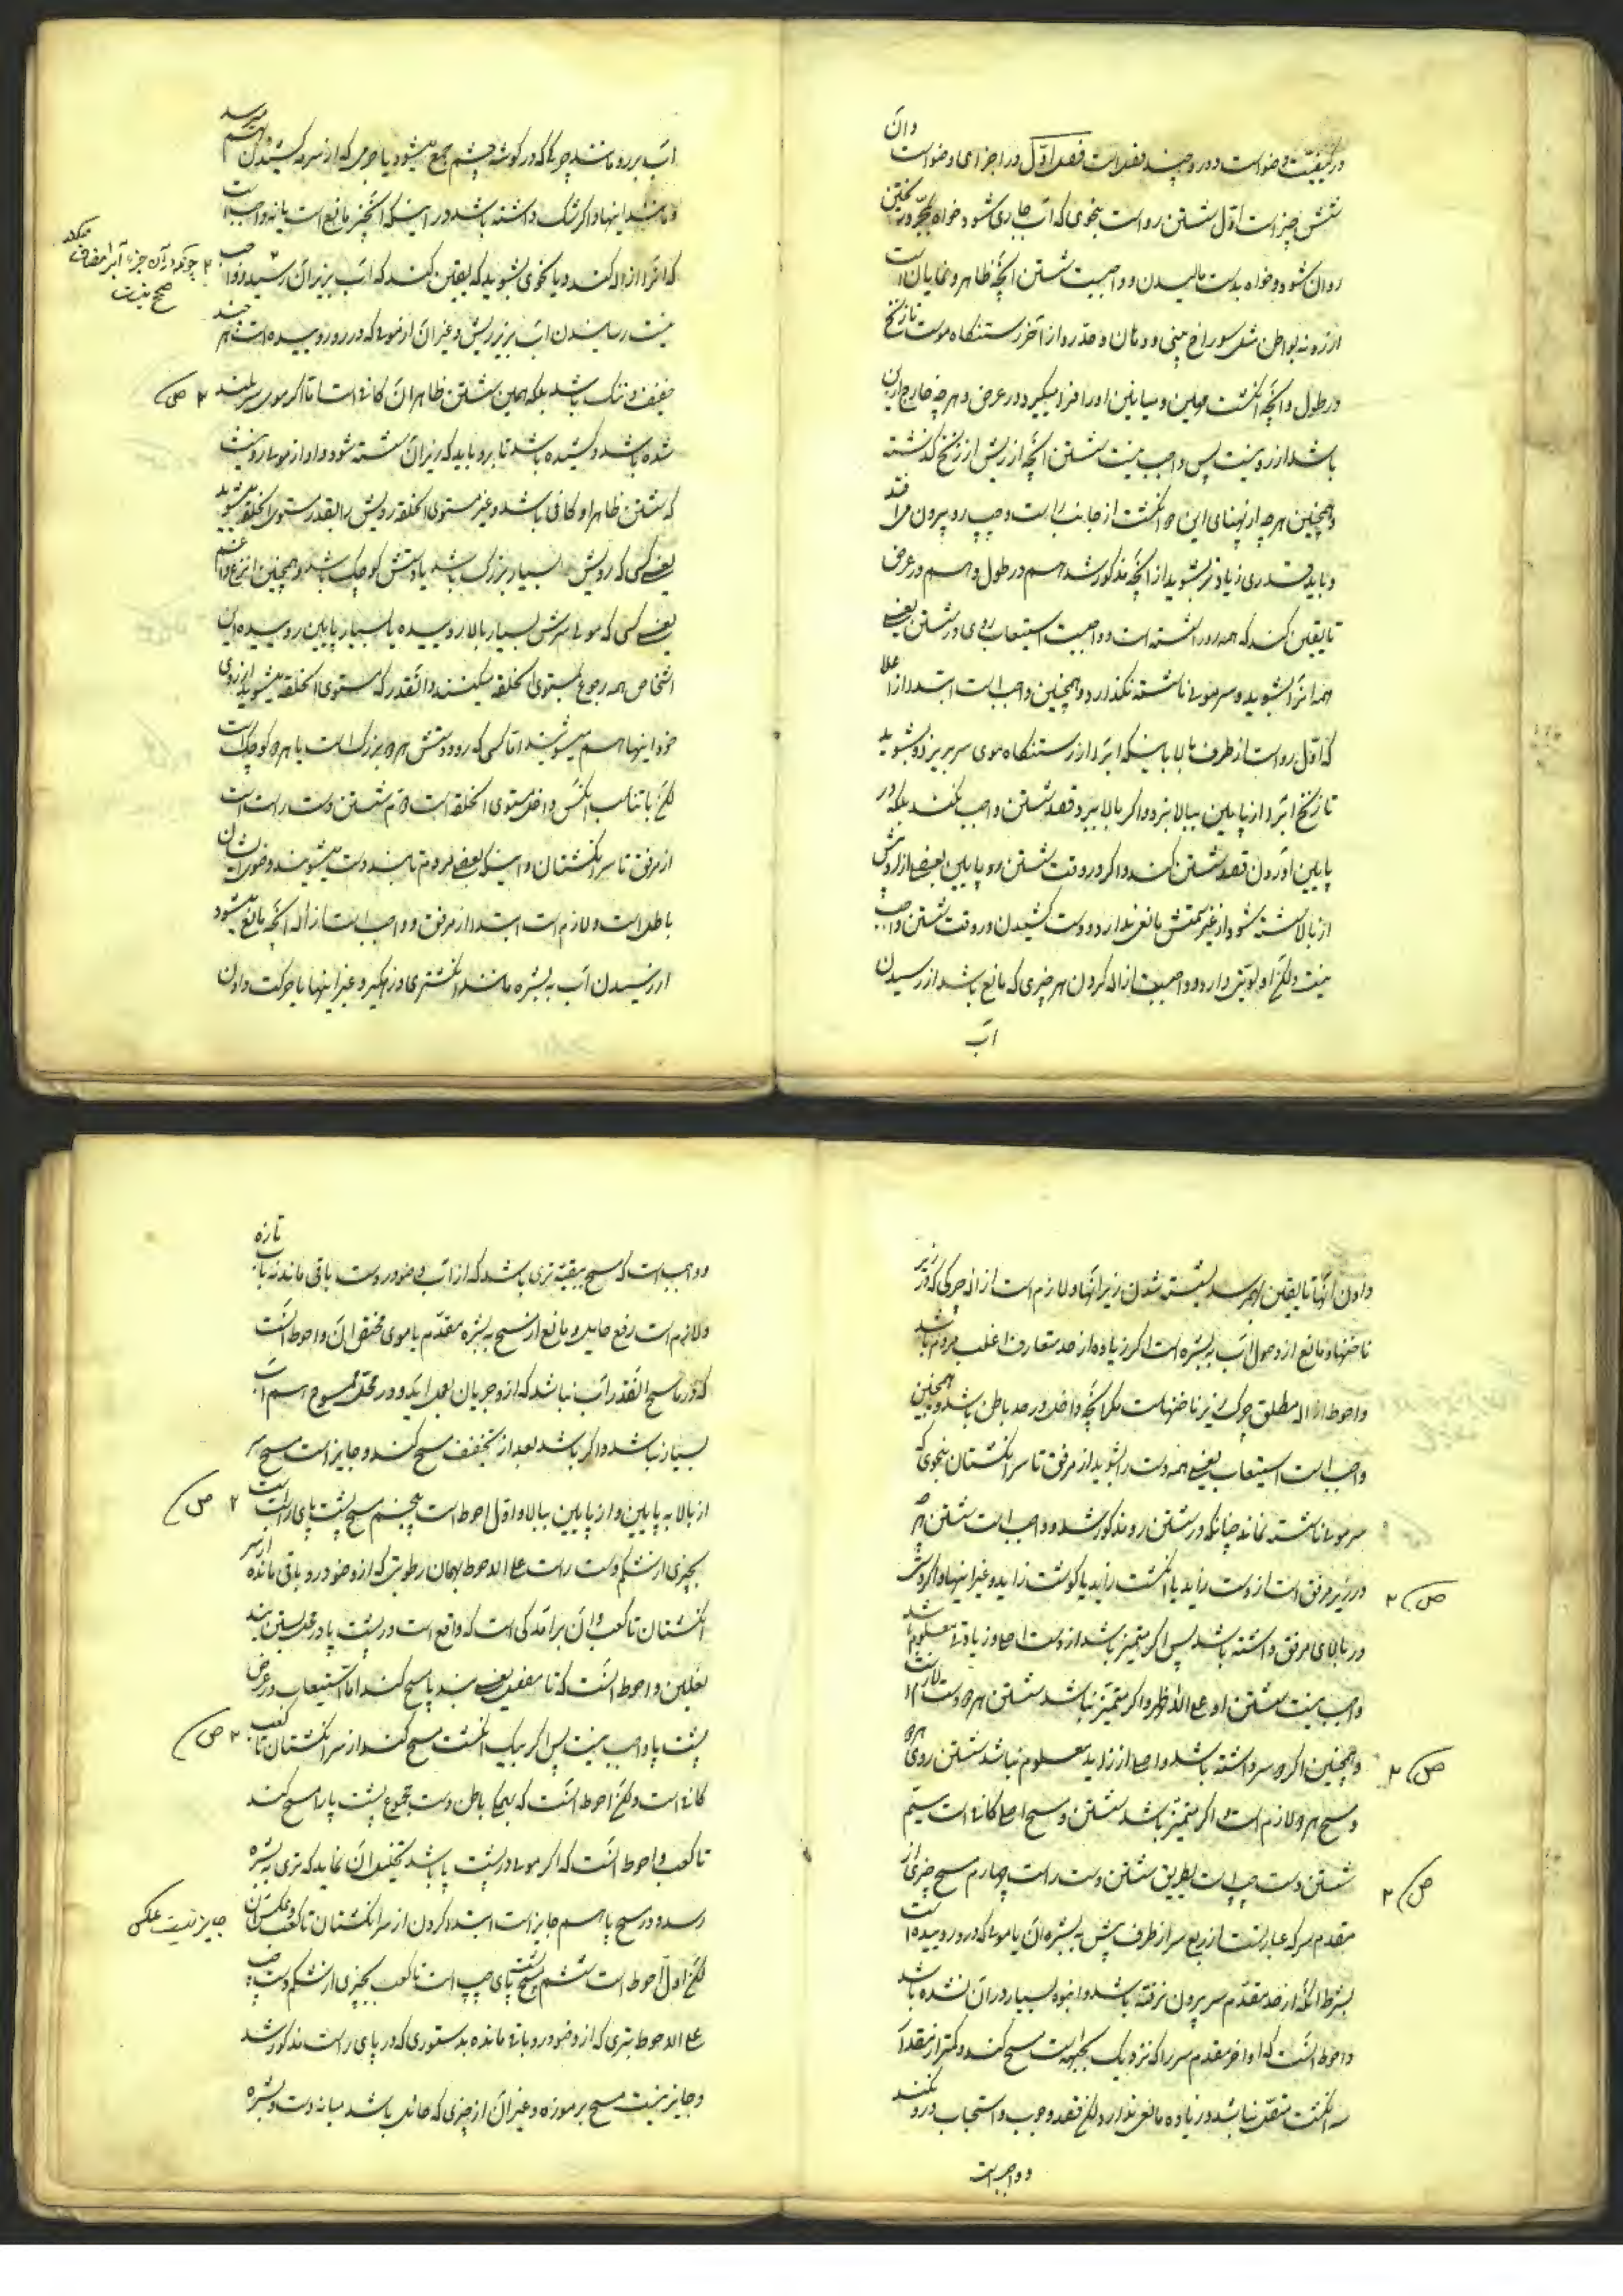 در کیفیّت وضو است و در و چند فصل است فصل اوّل در اجزای وضو است وان
شش چیز است اوّل شستن رو است بنحوی که آب جاری شود خواه بمجرد ریختن
روان شود و خواه بدست مالیدن و واجبست شستن آنچه ظاهر و نمایان است
از رو نه بواطن مثل سوراخ بینی و دهان و حد رو از آخر رستنگاه موست تا زنخ
در طول و آنچه انگشت مهین و میانین او را فرا میگیرد در عرض و هر چه خارج از این
باشد از رو نیست پس واجب نیست شستن آنچه از ریش از زنخ گذشته
و همچنین هر چه از پهنای این دو انگشت از جانب راست و چپ رو بیرون افتد
و باید قدری زیادتر بشوید از آنچه مذکور شد هم در طول و هم در عرض
تا یقین کند که همه رو را شسته است و واجبست استیعاب روی در شستن یعنی
همه آنرا بشوید و سر موئی ناشسته نگذارد و همچنین واجب است ابتدا از اعلا
که اوّل رو است از طرف بالا باینکه آبرا از رستنگاه موی سر بریزد و بشوید
تا زنخ آبرا از پایین ببالا نبرد و اگر ببالا برد قصد شستن واجب نکند بلکه در
پایین آوردن قصد شستن کند و اگر در وقت شستن رو پایین بعضی از رویش
از بالا شسته شود از غیر سمتش مانعی ندارد و دست کشیدن در وقت شستن واجب
نیست ولکن اولویّتی دارد و واجبست ازاله کردن هر چیزی که مانع باشد از رسیدن
آب
آب برو مانند چرکی که در گوشه چشم جمع میشود یا جرمی که از سرمه کشیدن بهم میرسد
و مانند اینها و اگر شک داشته باشد در اینکه آنچیز مانع است یا نه واجب است
که آنرا ازاله کند و یا نحوی بشوید که یقین کند که آب بزیر آن رسیده و واجب
نیست رسانیدن آب بزیر ریش و غیر آن از موئی که در رو روییده است هر چند
خفیف و تنک باشد بلکه همین شستن ظاهر آن کافی است اما اگر موی سر بلند
شده باشد و کشیده باشد تا برو باید که زیر آن شسته شود و او از موی رو نیست
که شستن ظاهر او کافی باشد و غیر مستوی الخلقه رویش را بقدر مستوی الخلقه میشوید
یعنی کسی که رویش بسیار بزرگ باشد یا دستش کوچک باشد و همچنین انزع و اغم
یعنی کسی که موی سرش بسیار بالا روییده یا بسیار پایین روییده این
اشخاص همه رجوع بمستوی الخلقه میکنند و آنقدر که مستوی الخلقه میشوید از روی
خود اینها هم میشویند اما کسی که رو و دستش هر دو بزرگ است یا هر دو کوچک است
لکن با تناسب آنکس داخل مستوی الخلقه است دوم شستن دست راست است
از مرفق تا سر انگشتان و اینکه بعضی مردم تا بند دست میشویند وضوی ایشان
باطل است و لازم است ابتدا از مرفق و واجب است ازاله آنچه مانع میشود
از رسیدن آب به بشره مانند انگشتری و زهگیر و غیر اینها یا حرکت دادن
چونکه در آن جزء آبرا مضاف میکند
صحیح نیست
۲ ص
دادن آنها تا یقین بهم رسد بشسته شدن زیر آنها و لازم است ازاله چرکی که در زیر
ناخنها و مانع از وصول آب به بشره است اگر زیاده از حد متعارف اغلب مردم باشد
و احوط ازاله مطلق چرک زیر ناخنهاست مگر آنچه داخل در حد باطن باشد و همچنین
واجب است استیعاب یعنی همه دست را بشوید از مرفق تا سر انگشتان بنحوی که
سر موئی ناشسته نماند چنانکه در شستن رو مذکور شد و واجب است شستن هر چه
در زیر مرفق است از دست زاید یا انگشت زاید یا گوشت زاید و غیر اینها و اگر دستی
در بالای مرفق داشته باشد پس اگر متمیز باشد از دست اصلی و زیادتی معلوم باشد
واجب نیست شستن او علی الاظهر و اگر متمیّز نباشد شستن هر دو دست لازم است
و همچنین اگر دو سر داشته باشد و اصلی از زاید معلوم نباشد شستن روی هر دو
و مسح هر دو لازم است و اگر متمیّز باشد شستن و مسح اصلی کافی است سیّم
شستن دست چپ است بطریق شستن دست راست چهارم مسح چیزی از
مقدم سر که عبارتست از ربع سر از طرف پیش به بشره آن یا موئی که در و روییده است
بشرط آنکه از حد مقدّم سر بیرون نرفته باشد و انبوه بسیار در آن نشده باشد
و احوط آنست که اواخر مقدم سر را که نزدیک بجبهه است مسح کند و کمتر از مقدار
سه انگشت متصل نباشد و زیاده مانعی ندارد لکن قصد وجوب و استحباب در و نکند
و واجبست
ص ۲
ص ۲
ص ۲
و واجب است که مسح ببقیّه تری باشد که از آب وضو در دست باقی مانده نه بآب تازه
و لازم است رفع حایل و مانع از مسح به بشره مقدّم یا موی مختص آن و احوط آنست
که در ماسح آنقدر آب نباشد که از و جریان بعمل آید و در محل ممسوح هم آب
بسیار نباشد و اگر باشد بعد از تخفیف مسح کند و جایز است مسح سر
از بالا به پایین و از پایین ببالا و اوّل احوط است پنجم مسح پشت پای راست است
بچیزی از شکم دست راست علی الاحوط بهمان رطوبتی که از وضو در و باقی مانده از سر
انگشتان تا کعب و آن برآمدگی است که واقع است در پشت پا در محل بستن بند
نعلین و احوط آنست که تا مفصل یعنی بند پا مسح کند اما استیعاب در عرض
پشت پا واجب نیست پس اگر بیک انگشت مسح کند از سر انگشتان تا کعب
کافی است ولکن احوط آنست که بتمام باطن دست مجموع پشت پا را مسح کند
تا کعب و احوط آنست که اگر موی در پشت پا باشد تخلیل آن نماید که تری به بشره
رسد و در مسح پا هم جایز است ابتدا کردن از سر انگشتان تا کعب و عکس آن
لکن اوّل احوط است ششم مسح پشت پای چپ است تا کعب بچیزی از شکم دست چپ
علی الاحوط بتری که از وضو در و باقی مانده بدستوری که در پای راست مذکور شد
و جایز نیست مسح بر موزه و غیر آن از چیزی که حائل باشد میانه دست و بشره
۲ ص
۲ ص
جایز نیست عکس